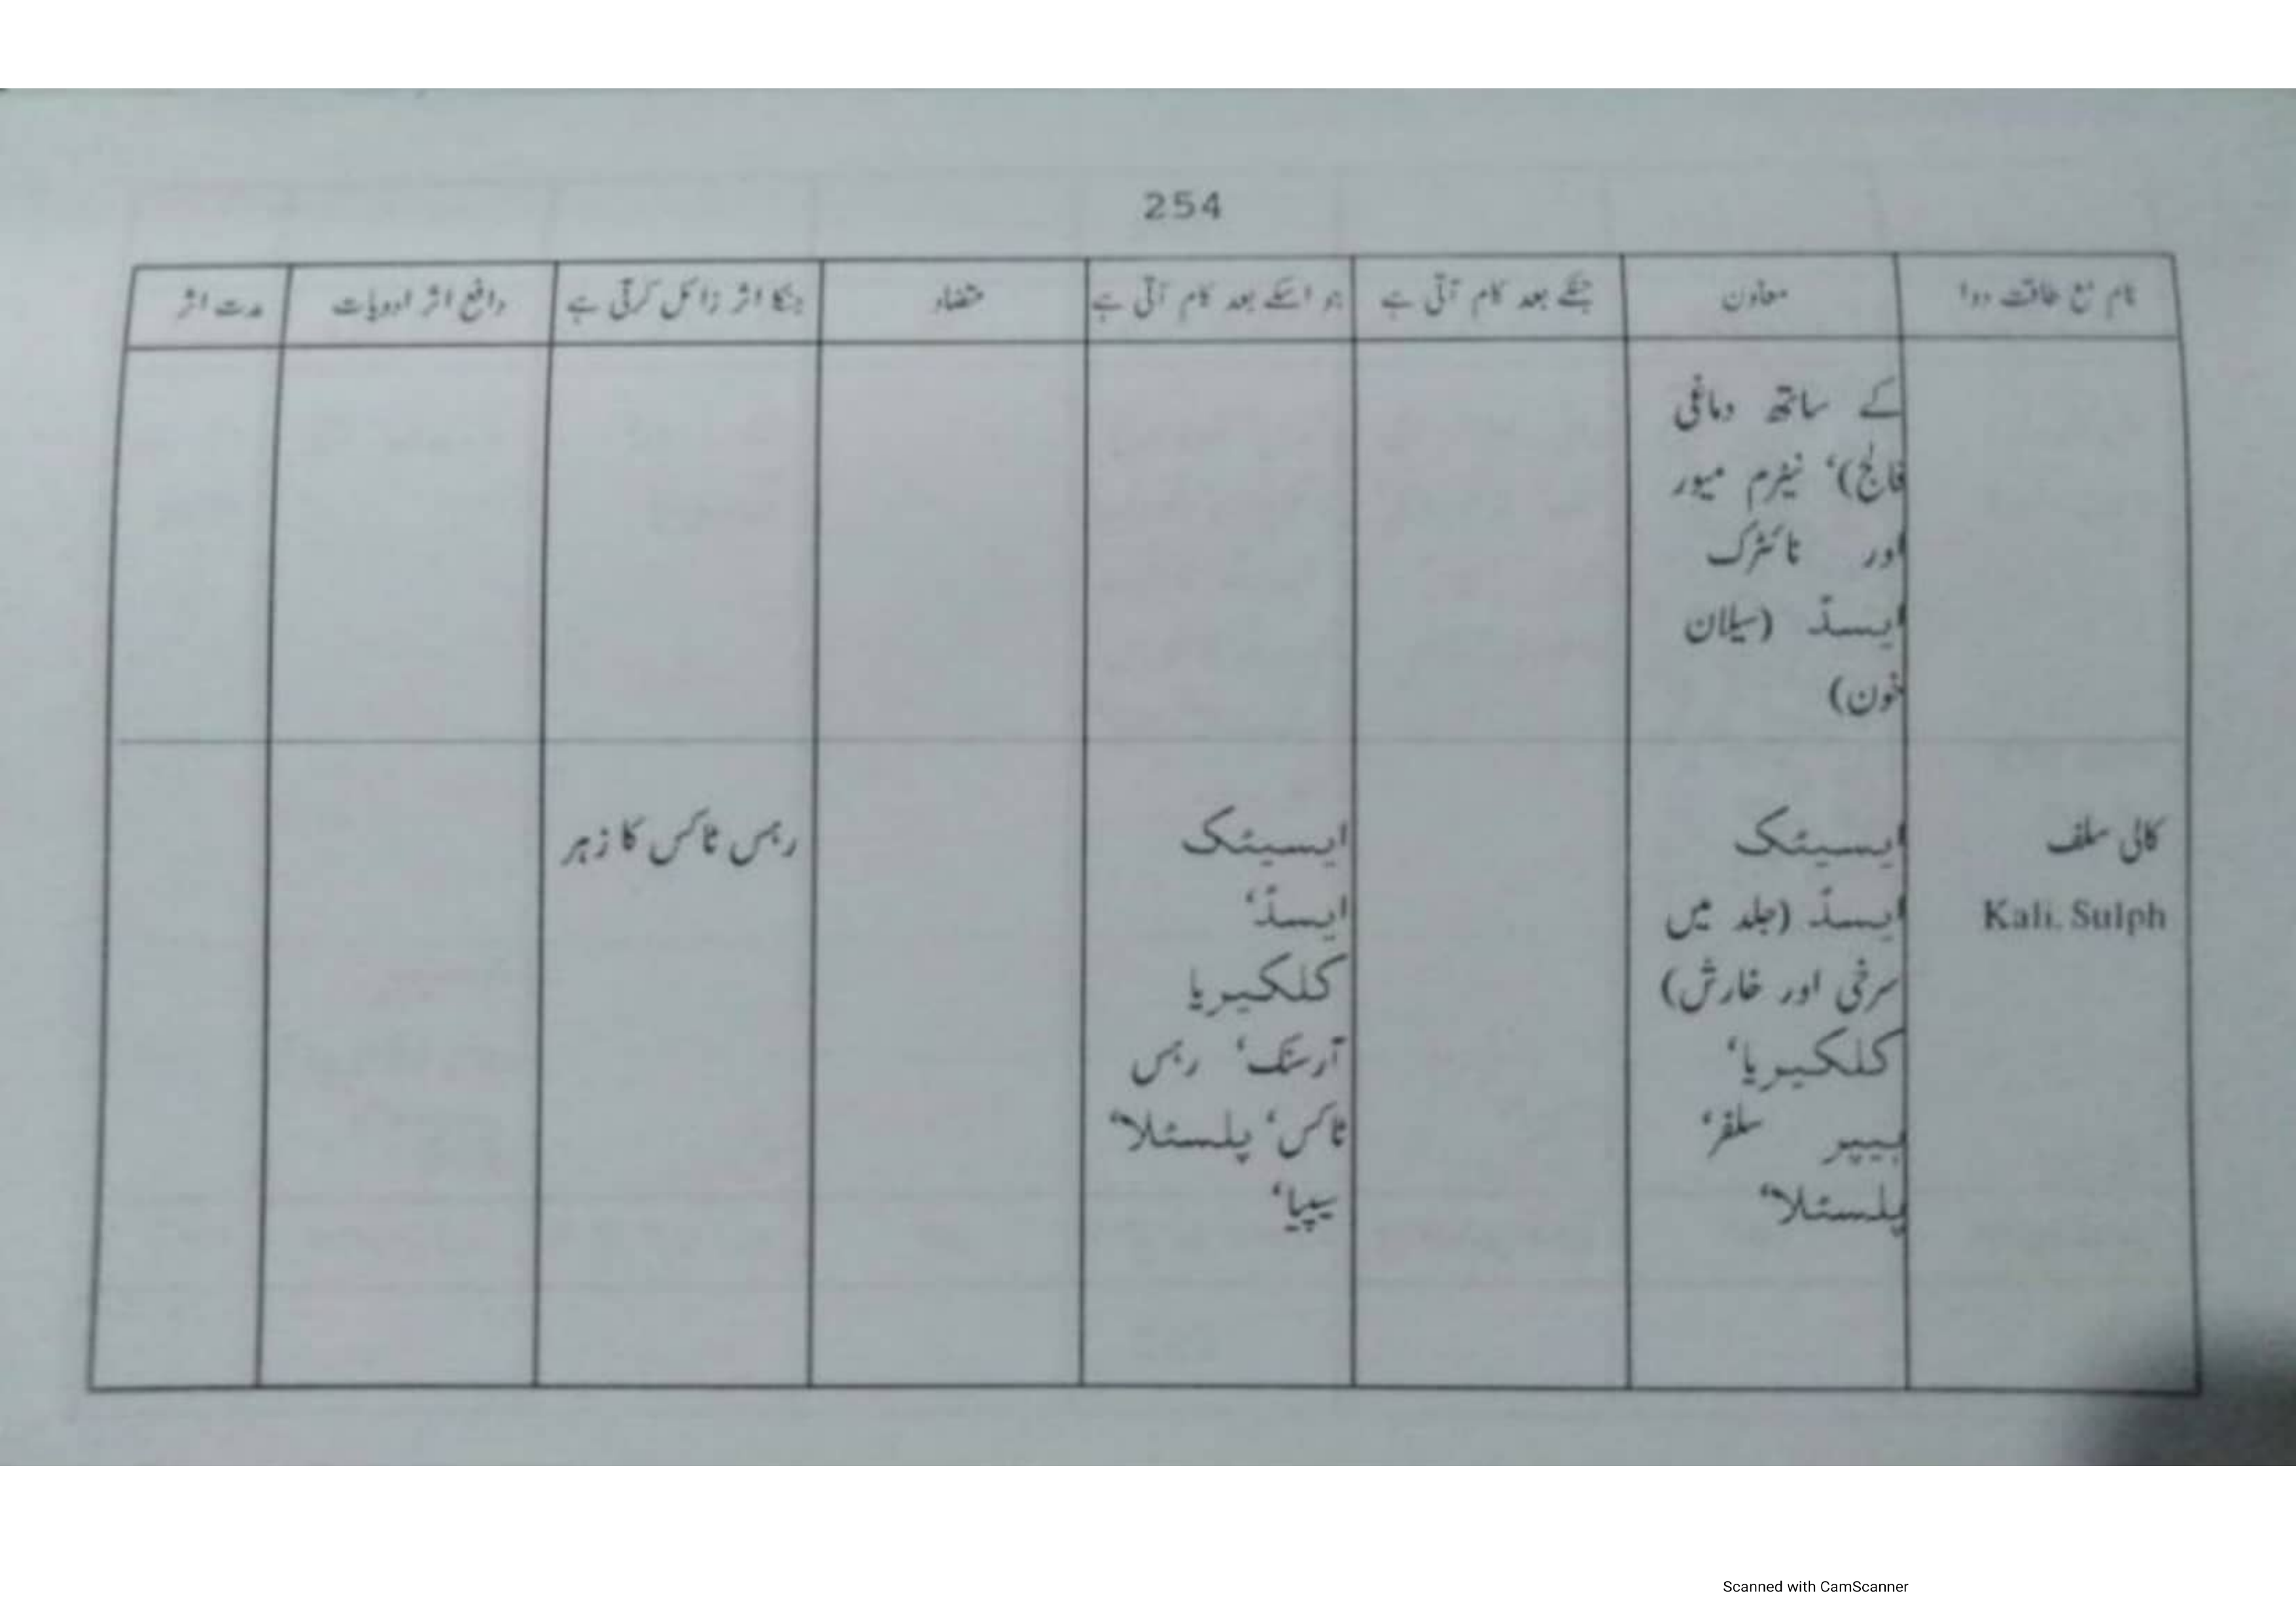 254
نام مع طاقت دوا
معاون
جنکے بعد کام آتی ہے
جو اسکے بعد کام آتی ہے
متضاد
جنکا اثر زائل کرتی ہے
دافع اثر ادویات
مدت اثر
کے ساتھ دماغی
فالج)‘ نیٹرم میور
اور نائٹرک
ایسڈ (سیلان
خون)
کالی سلف
Kali. Sulph
ایسیٹک
ایسڈ (جلد میں
سرخی اور خارش)
کلکیریا‘
ہیپر سلفر‘
پلسٹلا‘
ایسیٹک
ایسڈ‘
کلکیریا
آرسنک‘ رہس
ٹاکس‘ پلسٹلا‘
سیپیا‘
رہس ٹاکس کا زہر
Scanned with CamScanner